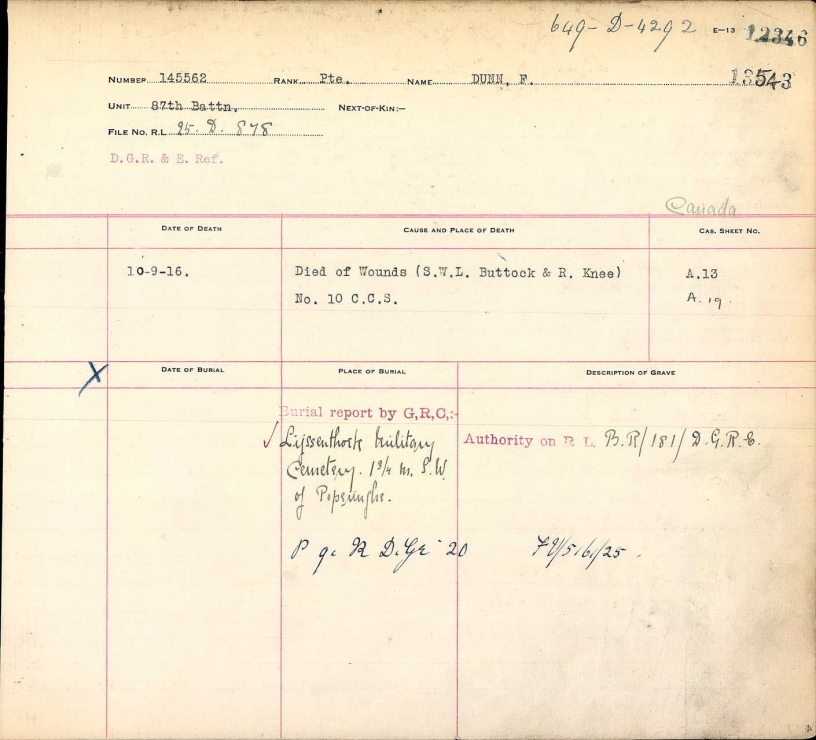 649-D-4292 E-13 12346
NUMBER 145562 RANK Pte. NAME DUNN, F. 13543
UNIT 87th Battn. NEXT-OF-KIN:-
FILE NO. R.L 25. D. 878
D.G.R. & E. Ref.
Canada
DATE OF DEATH CAUSE AND PLACE OF DEATH CAS. SHEET NO.
10-9-16. Died of Wounds (S.W.L. Buttock & R. Knee) A.13
No. 10 C.C.S. A. 19.
X DATE OF BURIAL PLACE OF BURIAL DESCRIPTION OF GRAVE
Burial report by G,R,C,:-
✓ Lijssenthoek Military Authority on R L. B.R/181/D.G.R.E.
Cemetery. 1¾ m. S.W.
of Poperinghe.
20